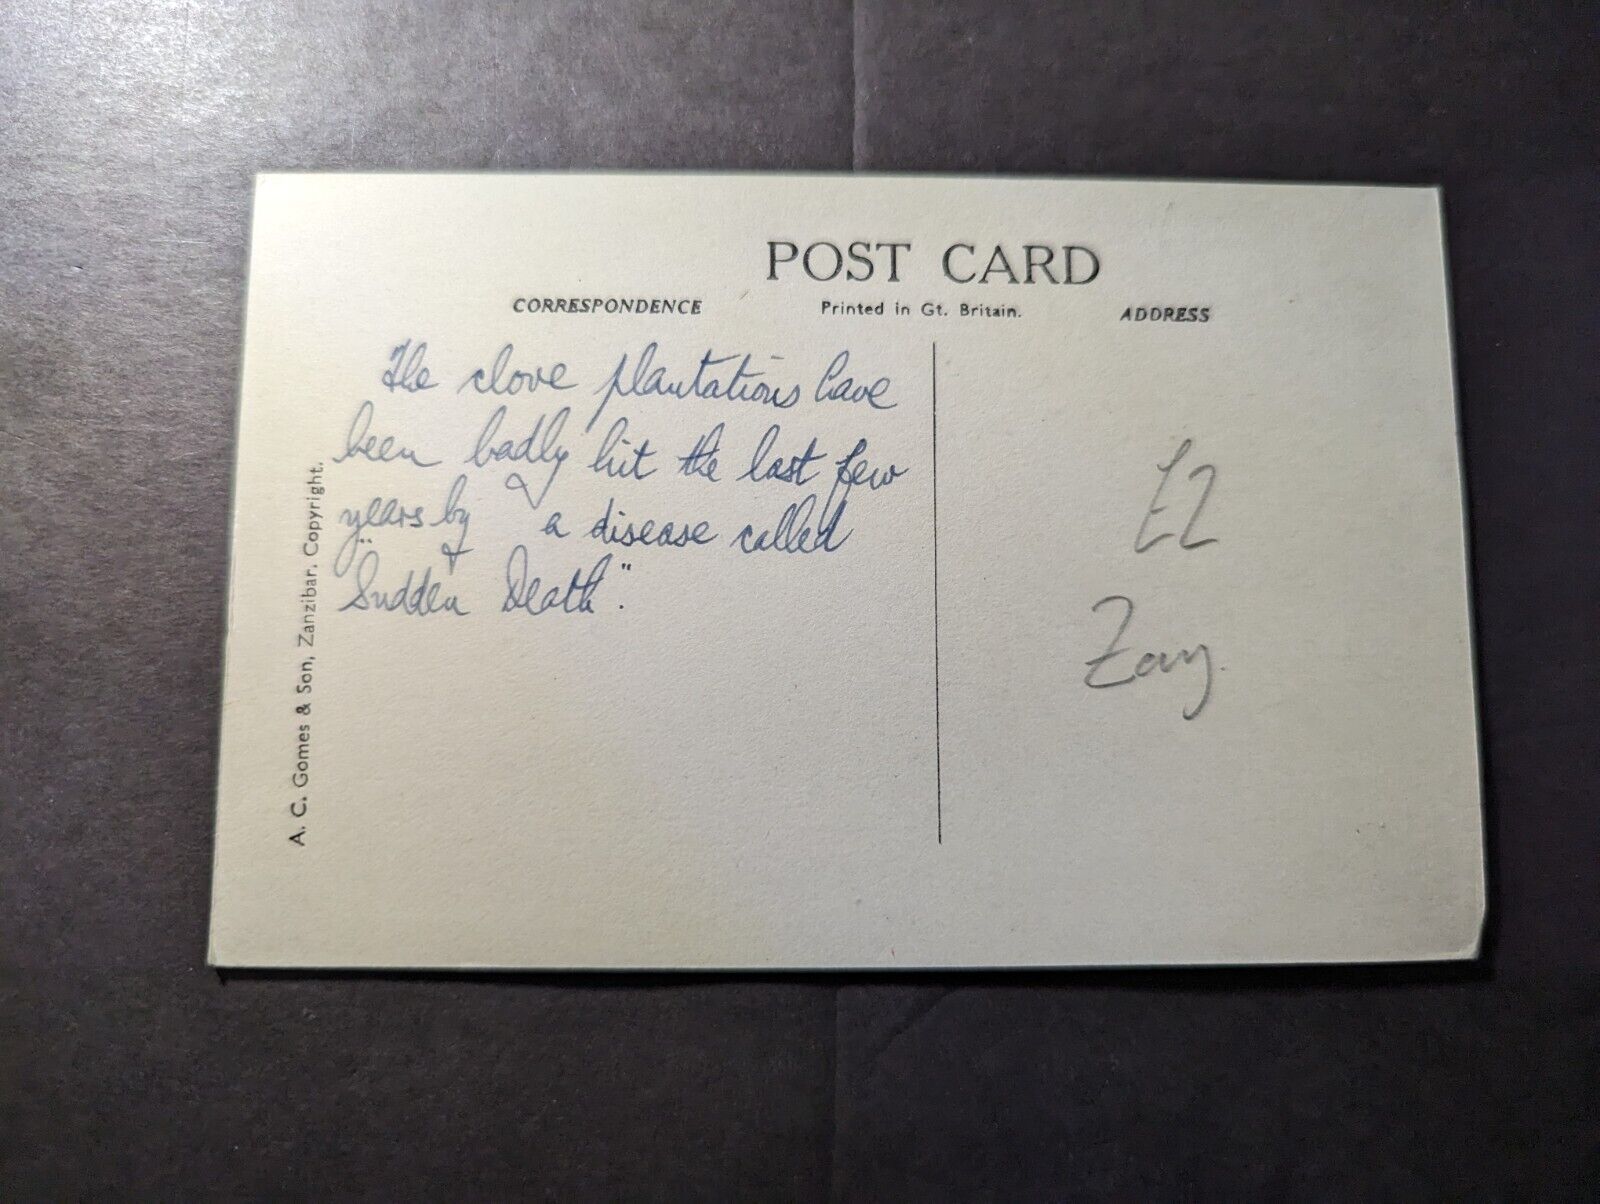 POST CARD
CORRESPONDENCE
Printed in Gt. Britain.
ADDRESS
The clove plantations have
been badly hit the last few
years by a disease called
"Sudden Death".
£2
A. C. Gomes & Son, Zanzibar. Copyright.